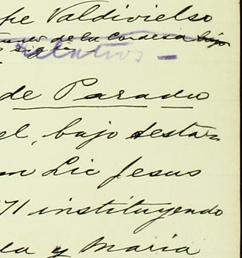 pe Valdivielso
de la Cordera bajo
relativo -
de Parado
el, bajo testa-
n Lic Jesus
71 instituyendo
a y Maria